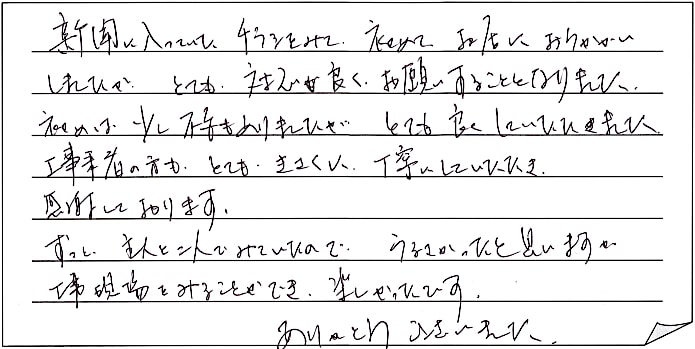 新聞に入っていた チラシをみて、初めて お店に おうかがい
しましたが、とても、対応が良く、お願いすることとなりました。
初めは、少し不安もありましたが とても 良くしていただきました。
工事業者の方も、とても、きさくに、丁寧にしていただき、
感謝しております。
ずっと、主人と二人でみていたので、うるさかったと思いますが
工事現場をみることができ、楽しかったです。
ありがとう ございました。